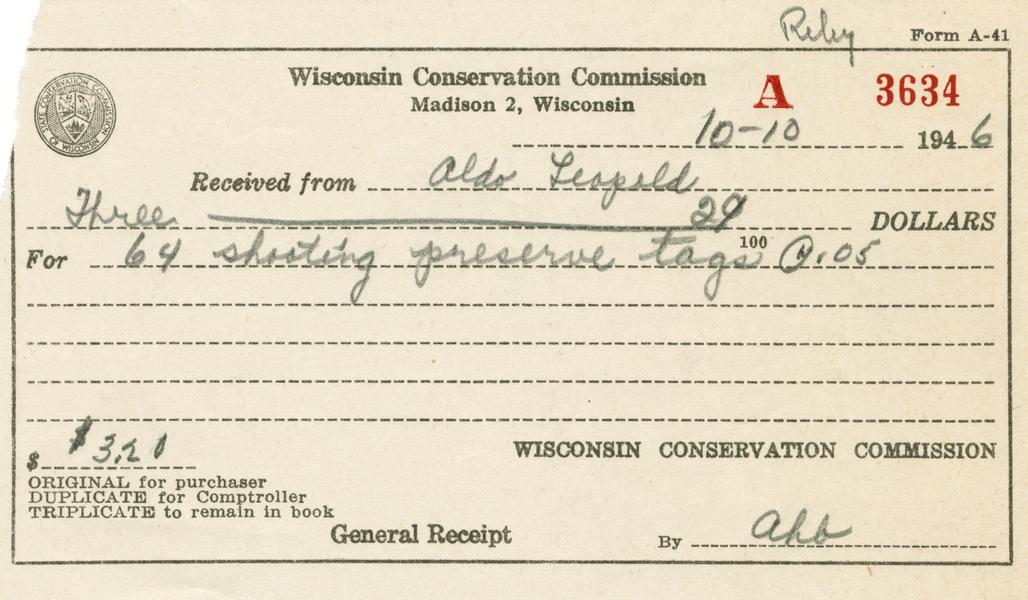 Riley
Form A-41
Wisconsin Conservation Commission
A 3634
Madison 2, Wisconsin
10-10 1946
STATE CONSERVATION COMMISSION OF WISCONSIN
Received from Aldo Leopold
Three 20 DOLLARS
100
For 64 shooting preserve tags @.05
$ $3.20
WISCONSIN CONSERVATION COMMISSION
ORIGINAL for purchaser
DUPLICATE for Comptroller
TRIPLICATE to remain in book
General Receipt
By